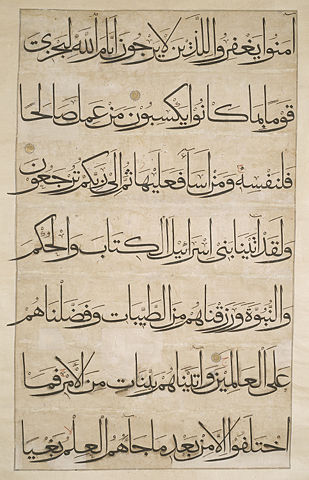 آمنوا يغفروا للذين لا يرجون أيام الله ليجزي
قوما بما كانوا يكسبون من عمل صالحا
فلنفسه ومن أساء فعليها ثم إلى ربكم ترجعون
ولقد آتينا بني اسرائيل الكتاب والحكم
والنبوة ورزقناهم من الطيبات وفضلناهم
على العالمين وآتيناهم بينات من الأمر فما
اختلفوا إلا من بعد ما جاءهم العلم بغيا